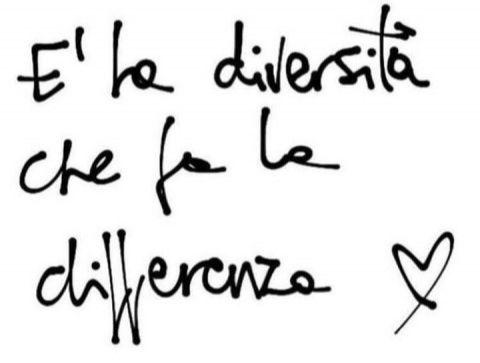 E' la diversità
che fa la
differenza